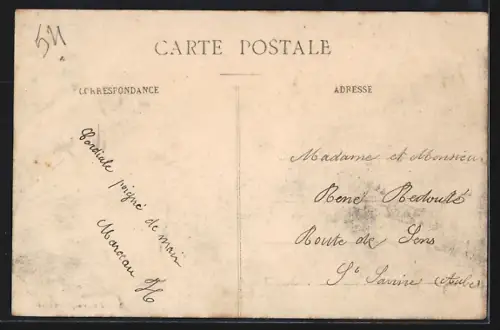 51
CARTE POSTALE
CORRESPONDANCE
ADRESSE
Cordiale poigné de main
Marceau H
Madame et Monsieur
René Redouté
Route de Sens
Ste Savine (Aube)